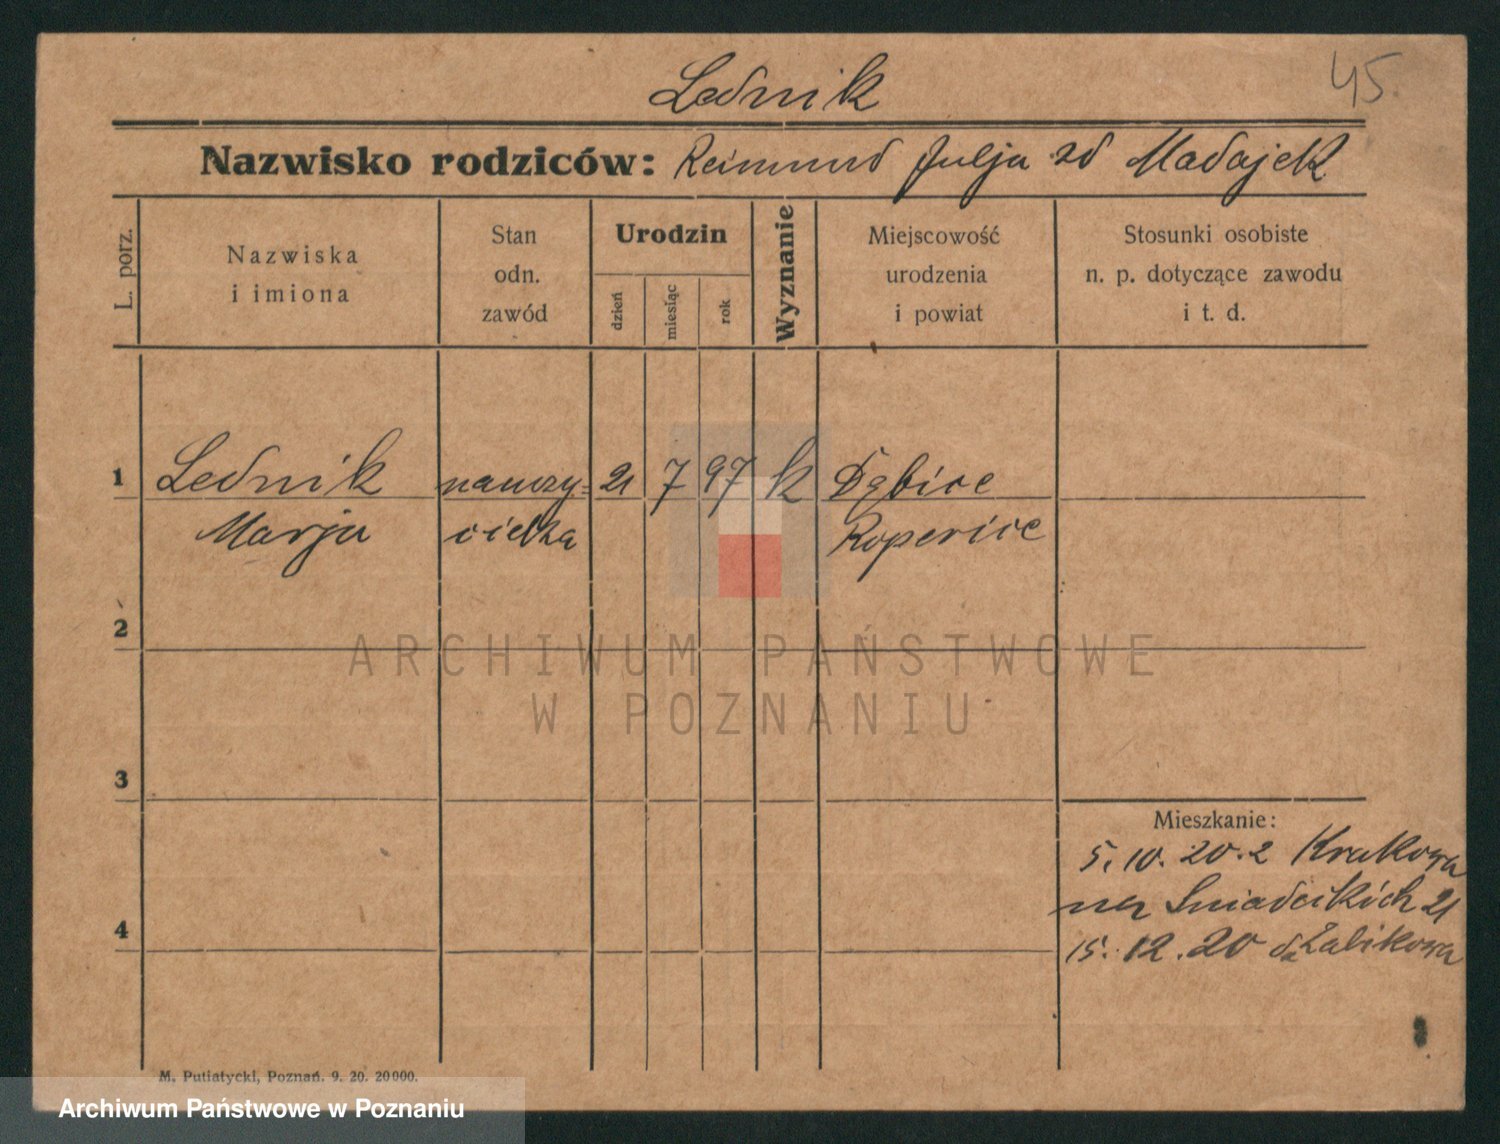 Lednik
45.
Nazwisko rodziców: Reimund Julja zd Madajek
L. porz.
Nazwiska
i imiona
Stan
odn.
zawód
Urodzin
dzień
miesiąc
rok
Wyznanie
Miejscowość
urodzenia
i powiat
Stosunki osobiste
n. p. dotyczące zawodu
i t. d.
1
Lednik nauczy= 21 7 97 k Dębice
Marja cielka Ropczice
2
ARCHIWUM PAŃSTWOWE
W POZNANIU
3
Mieszkanie:
5. 10. 20. z Krakowa
na Sniadeckich 21
4
15. 12. 20 do Żabikowa
M. Putiatycki, Poznań. 9. 20. 20000.
Archiwum Państwowe w Poznaniu